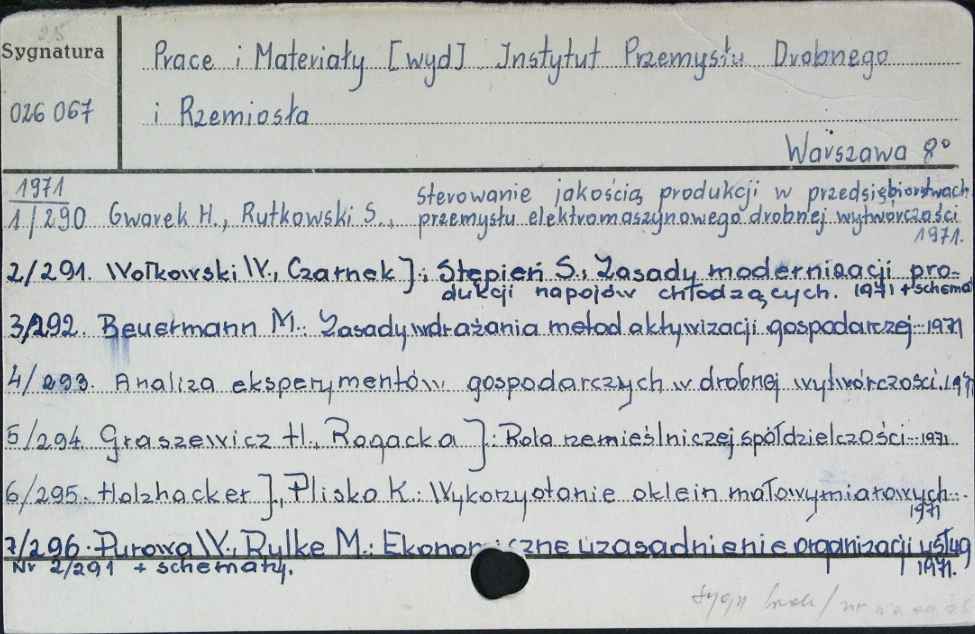 Sygnatura
026 067
Prace i Materiały [wyd] Instytut Przemysłu Drobnego
i Rzemiosła
Warszawa 8°
1971
1/290 Gwarek H., Rutkowski S., Sterowanie jakością produkcji w przedsiębiorstwach
przemysłu elektromaszynowego drobnej wytwórczości
1971.
2/291. Wołkowski W., Czarnek J., Stępień S., Zasady modernizacji pro-
dukcji napojów chłodzących. 1971 + schema
3/292. Beuermann M.: Zasady wdrażania metod aktywizacji gospodarczej 1971
4/293. Analiza eksperymentów gospodarczych w drobnej wytwórczości. 1971
5/294. Graszewicz H., Rogacka J.: Rola rzemieślniczej spółdzielczości 1971
6/295. Holzhacker J., Plisko K.: Wykorzystanie oklein małowymiarowych
1971
7/296. Purowa W., Rylke M.: Ekonomiczne uzasadnienie organizacji usług
1971.
Nr 2/291 + schematy.